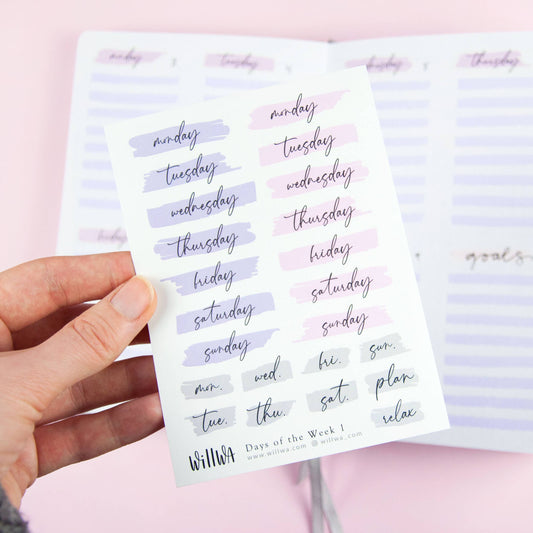 monday
tuesday
thursday
friday
goals
monday
tuesday
wednesday
thursday
friday
saturday
sunday
monday
tuesday
wednesday
thursday
friday
saturday
sunday
mon. wed. fri. sun.
tue. thu. sat. plan
relax
WillWA
Days of the Week 1
www.willwa.com @willwa_com